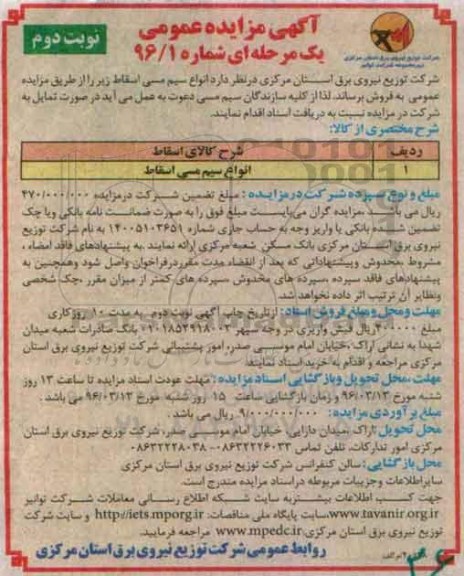 آگهی مزایده عمومی
یک مرحله ای شماره ۹۶/۱
نوبت دوم
شرکت توزیع نیروی برق استان مرکزی
شرکت توزیع نیروی برق استان مرکزی درنظر دارد انواع سیم مسی اسقاط زیر را از طریق مزایده
عمومی به فروش برساند. لذا از کلیه سازندگان سیم مسی دعوت به عمل می آید در صورت تمایل به
شرکت در مزایده نسبت به دریافت اسناد اقدام نمایند.
شرح مختصری از کالا:
ردیف شرح کالای اسقاط
۱ انواع سیم مسی اسقاط
مبلغ و نوع سپرده شرکت در مزایده : مبلغ تضمین شرکت درمزایده ۴۷۰/۰۰۰/۰۰۰
ریال می باشد .مزایده گران می بایست مبلغ فوق را به صورت ضمانت نامه بانکی ویا چک
تضمین شده بانکی یا واریز وجه به حساب جاری شماره ۱۴۰۰۵۱۰۳۶۵۱ به نام شرکت توزیع
نیروی برق استان مرکزی بانک مسکن شعبه مرکزی ارائه نمایند .به پیشنهادهای فاقد امضاء ،
مشروط ،مخدوش وپیشنهاداتی که بعد از انقضاء مدت مقرردرفراخوان واصل شود وهمچنین به
پیشنهادهای فاقد سپرده ،سپرده های مخدوش سپرده های کمتر از میزان مقرر ،چک شخصی
ونظایر آن ترتیب اثر داده نخواهد شد.
مهلت ومحل ومبلغ فروش اسناد : ازتاریخ چاپ آگهی نوبت دوم به مدت ۱۰ روزکاری
مبلغ ۴۰۰۰۰۰ریال فیش واریزی در وجه سپهر ۰۱۰۱۸۵۲۹۱۸۰۰۲ بانک صادرات شعبه میدان
شهدا به نشانی اراک ،خیابان امام موسی صدر، امور پشتیبانی شرکت توزیع نیروی برق استان
مرکزی مراجعه و اقدام به خرید اسناد نمایند.
مهلت ،محل تحویل وبازگشایی اسناد مزایده : مهلت عودت اسناد مزایده تا ساعت ۱۳ روز
شنبه مورخ ۹۶/۰۳/۱۳ و زمان بازگشایی ساعت ۱۵ روز شنبه مورخ ۹۶/۰۳/۱۳ می باشد .
مبلغ برآوردی مزایده : ۹/۰۰۰/۰۰۰/۰۰۰ ریال می باشد .
محل تحویل :اراک ،میدان دارایی، خیابان امام موسی صدر، شرکت توزیع نیروی برق استان
مرکزی امور تدارکات، تلفن تماس ۰۸۶۳۲۲۲۶۰۳۳-۰۸۶۳۲۲۲۸۰۳۸
محل بازگشایی :سالن کنفرانس شرکت توزیع نیروی برق استان مرکزی
سایراطلاعات وجزییات مربوطه دراسناد مزایده مندرج است.
جهت کسب اطلاعات بیشتربه سایت شبکه اطلاع رسانی معاملات شرکت توانیر
www.tavanir.org.ir،سایت پایگاه ملی مناقصات: http://iets.mporg.ir و سایت شرکت
توزیع نیروی برق استان مرکزی:www.mpedc.ir مراجعه فرمایید.
روابط عمومی شرکت توزیع نیروی برق استان مرکزی